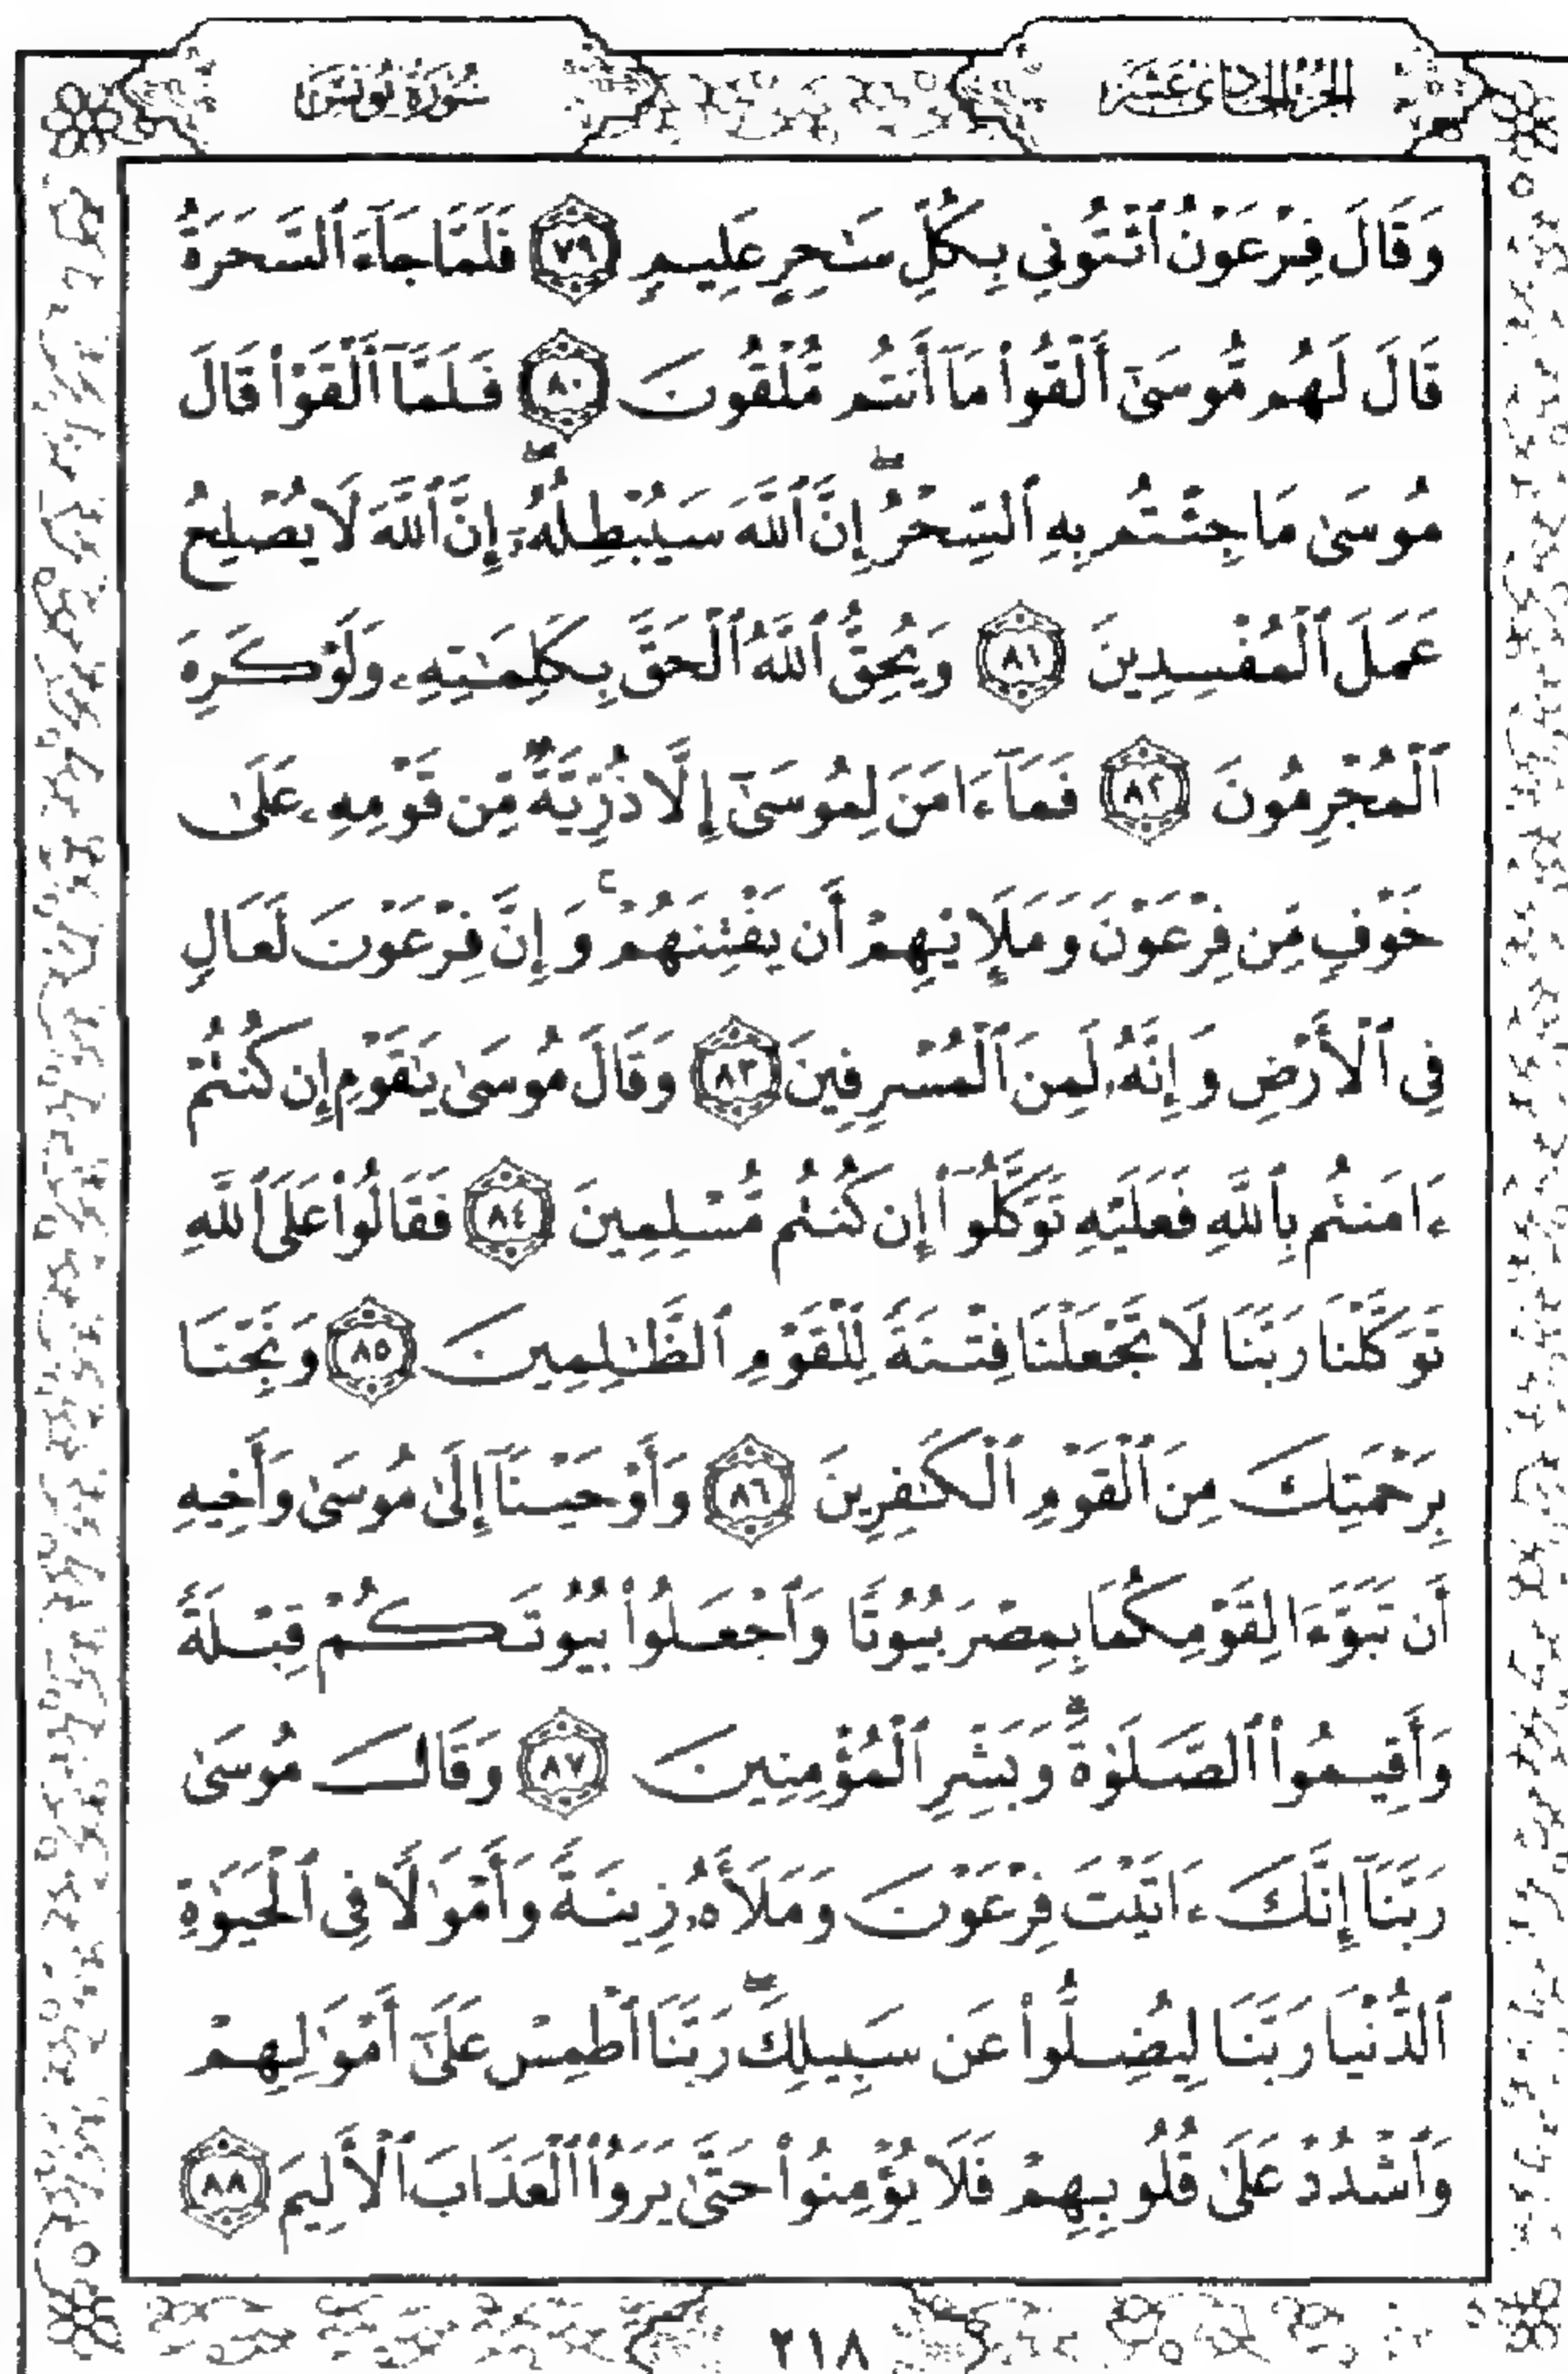 الجزء الحادي عشر
سورة يونس
وَقَالَ فِرْعَوْنُ ٱئْتُونِي بِكُلِّ سَٰحِرٍ عَلِيمٍ ٧٩ فَلَمَّا جَآءَ ٱلسَّحَرَةُ
قَالَ لَهُم مُّوسَىٰٓ أَلْقُوا۟ مَآ أَنتُم مُّلْقُونَ ٨٠ فَلَمَّآ أَلْقَوْا۟ قَالَ
مُوسَىٰ مَا جِئْتُم بِهِ ٱلسِّحْرُ ۖ إِنَّ ٱللَّهَ سَيُبْطِلُهُۥٓ ۖ إِنَّ ٱللَّهَ لَا يُصْلِحُ
عَمَلَ ٱلْمُفْسِدِينَ ٨١ وَيُحِقُّ ٱللَّهُ ٱلْحَقَّ بِكَلِمَٰتِهِۦ وَلَوْ كَرِهَ
ٱلْمُجْرِمُونَ ٨٢ فَمَآ ءَامَنَ لِمُوسَىٰٓ إِلَّا ذُرِّيَّةٌ مِّن قَوْمِهِۦ عَلَىٰ
خَوْفٍ مِّن فِرْعَوْنَ وَمَلَإِيْهِمْ أَن يَفْتِنَهُمْ ۚ وَإِنَّ فِرْعَوْنَ لَعَالٍ
فِي ٱلْأَرْضِ وَإِنَّهُۥ لَمِنَ ٱلْمُسْرِفِينَ ٨٣ وَقَالَ مُوسَىٰ يَٰقَوْمِ إِن كُنتُمْ
ءَامَنتُم بِٱللَّهِ فَعَلَيْهِ تَوَكَّلُوٓا۟ إِن كُنتُم مُّسْلِمِينَ ٨٤ فَقَالُوا۟ عَلَى ٱللَّهِ
تَوَكَّلْنَا رَبَّنَا لَا تَجْعَلْنَا فِتْنَةً لِّلْقَوْمِ ٱلظَّٰلِمِينَ ٨٥ وَنَجِّنَا
بِرَحْمَتِكَ مِنَ ٱلْقَوْمِ ٱلْكَٰفِرِينَ ٨٦ وَأَوْحَيْنَآ إِلَىٰ مُوسَىٰ وَأَخِيهِ
أَن تَبَوَّءَا لِقَوْمِكُمَا بِمِصْرَ بُيُوتًا وَٱجْعَلُوا۟ بُيُوتَكُمْ قِبْلَةً
وَأَقِيمُوا۟ ٱلصَّلَوٰةَ ۗ وَبَشِّرِ ٱلْمُؤْمِنِينَ ٨٧ وَقَالَ مُوسَىٰ
رَبَّنَآ إِنَّكَ ءَاتَيْتَ فِرْعَوْنَ وَمَلَأَهُۥ زِينَةً وَأَمْوَٰلًا فِي ٱلْحَيَوٰةِ
ٱلدُّنْيَا رَبَّنَا لِيُضِلُّوا۟ عَن سَبِيلِكَ ۖ رَبَّنَا ٱطْمِسْ عَلَىٰٓ أَمْوَٰلِهِمْ
وَٱشْدُدْ عَلَىٰ قُلُوبِهِمْ فَلَا يُؤْمِنُوا۟ حَتَّىٰ يَرَوُا۟ ٱلْعَذَابَ ٱلْأَلِيمَ ٨٨
٢١٨